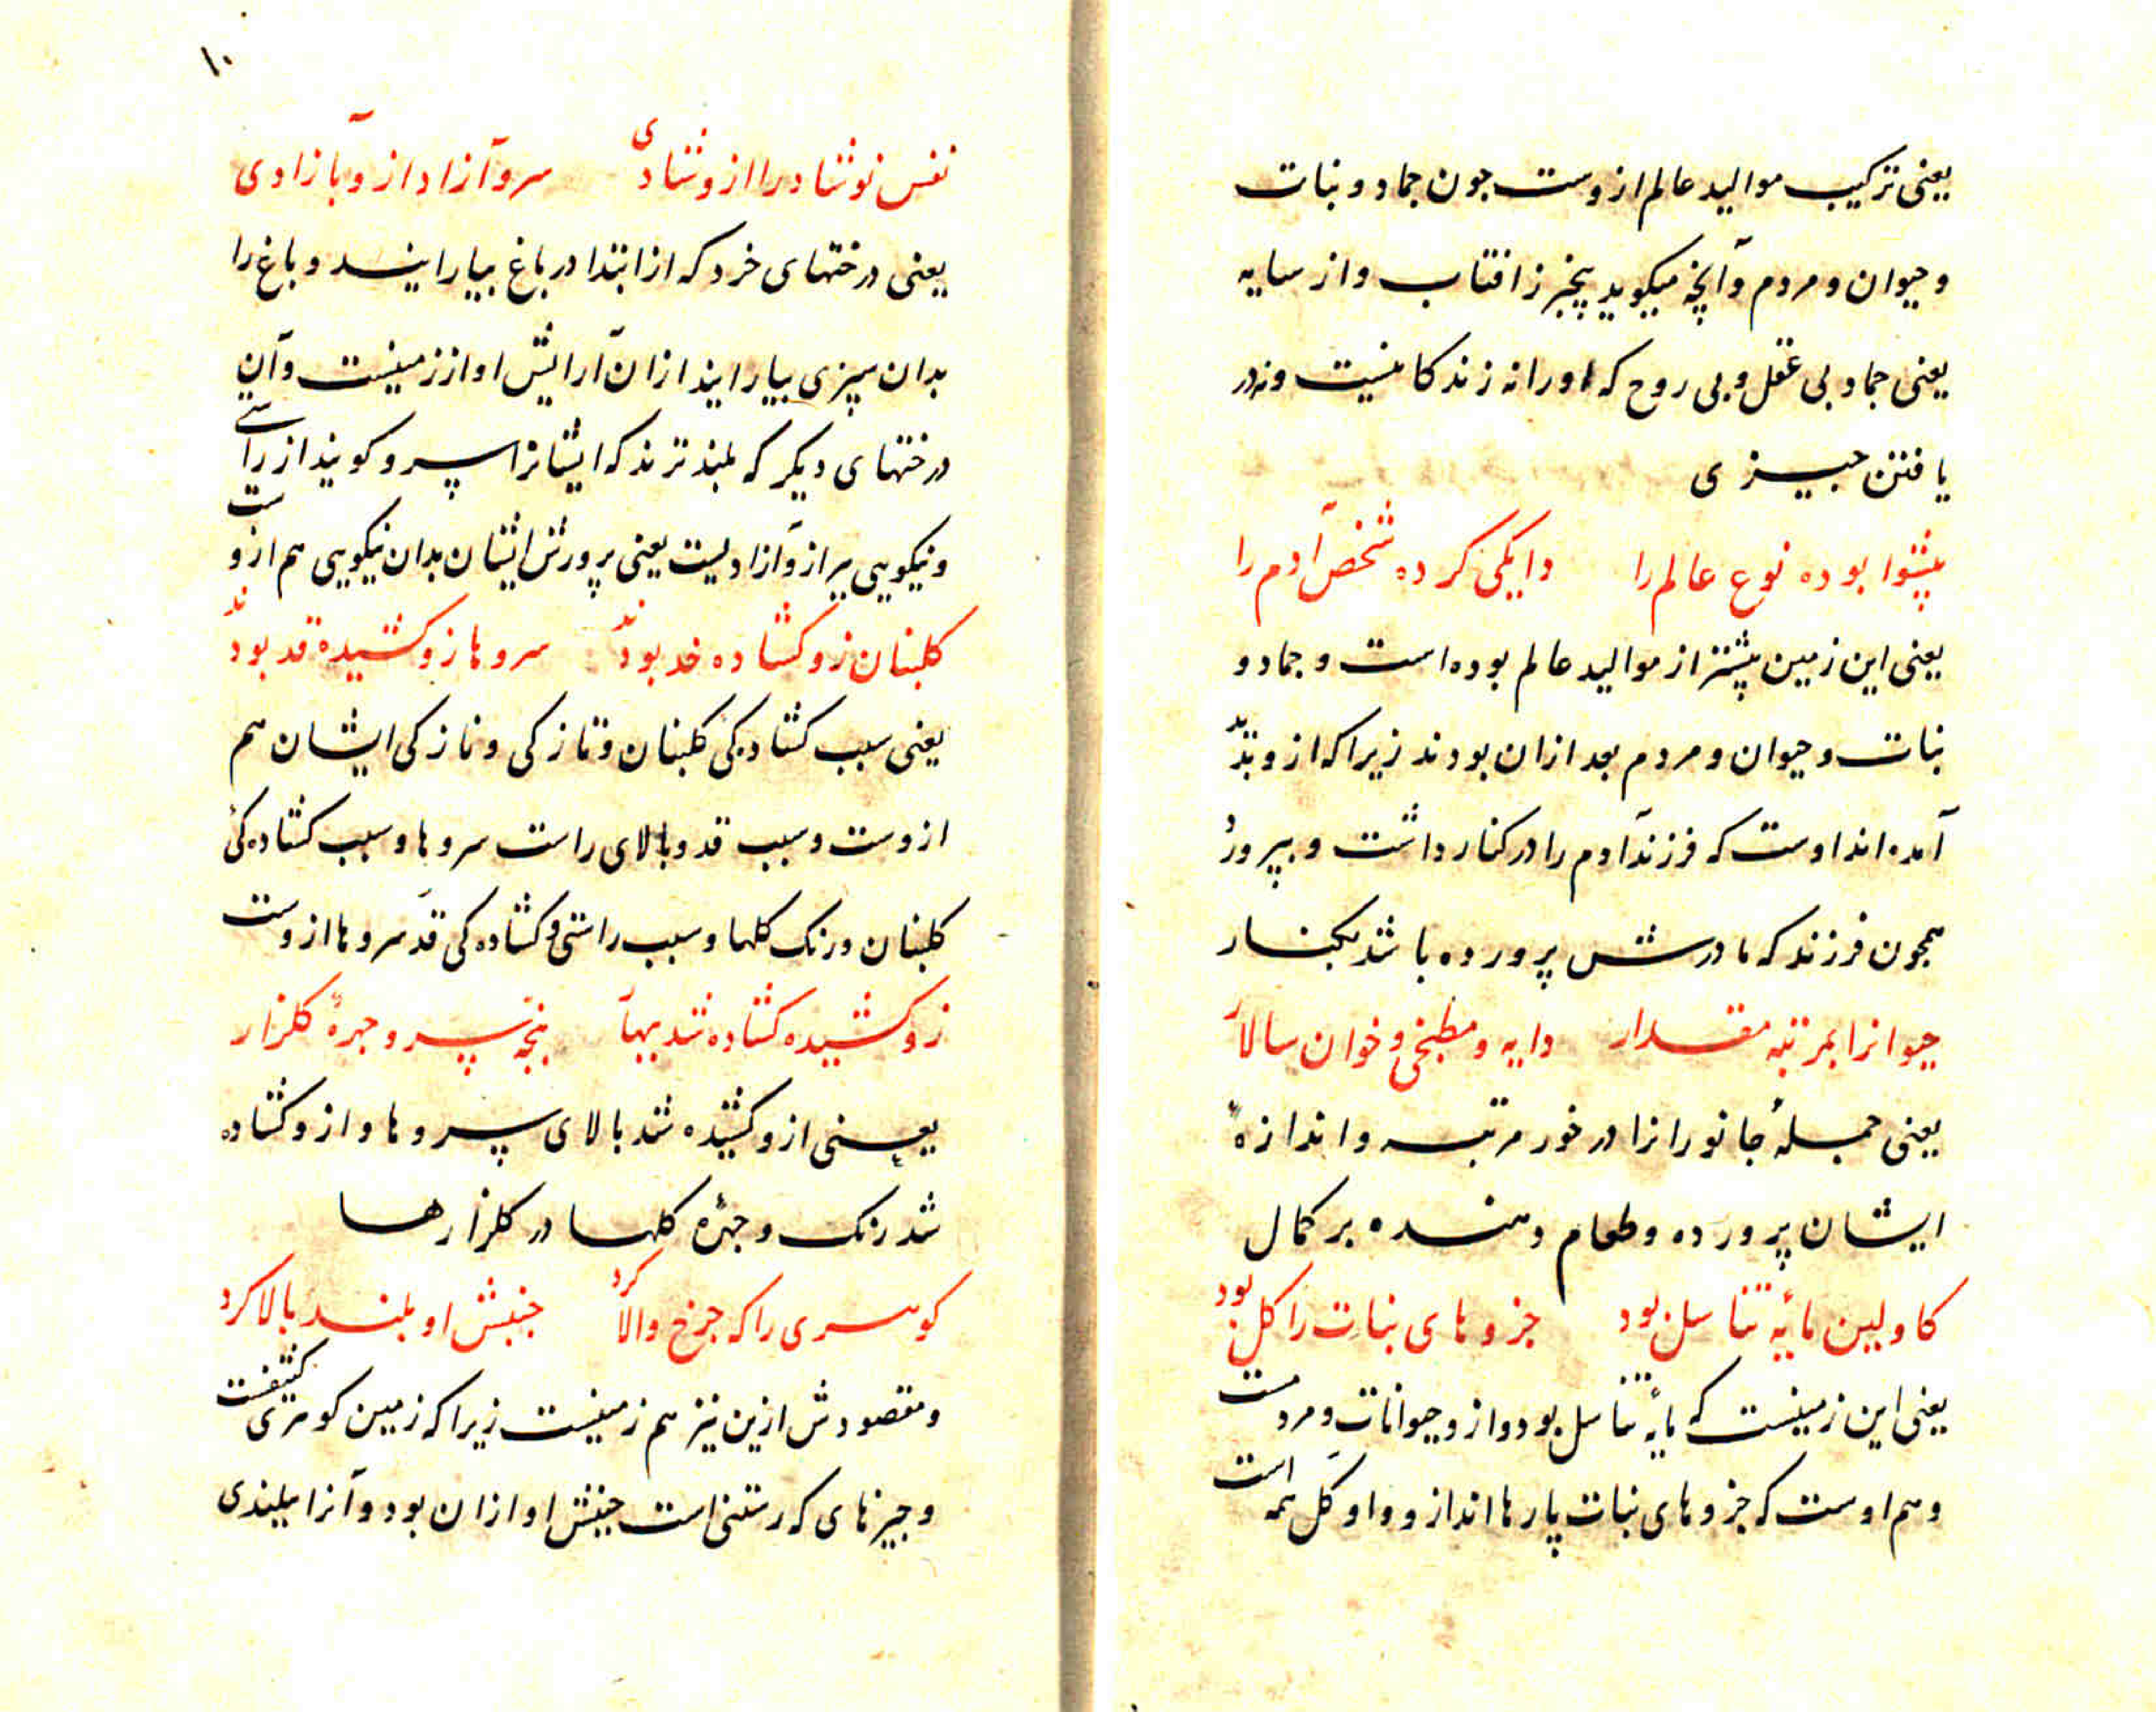 یعنی ترکیب موالید عالم ازوست جون جماد و نبات
و حیوان و مردم و آنچه میکوید بیخبر ز افتاب و از سایه
یعنی جماد بی عقل و بی روح که اورا نه زندکانیست و نه در
یافتن جیزی
پیشوا بوده نوع عالم را دایکی کرده شخص آدم را
یعنی این زمین پیشتر از موالید عالم بوده است و جماد و
نبات و حیوان و مردم بعد ازان بودند زیرا که ازو پدید
آمده اند اوست که فرزند آدم را در کنار داشت و بپرورد
همجون فرزند که مادرش پرورده باشد بکنار
حیوانرا بمرتبه مقدار دایه و مطبخی و خوان سالار
یعنی جملهٔ جانورانرا در خور مرتبه و اندازهٔ
ایشان پرورده و طعام دهنده بر کمال
کاولین مایهٔ تناسل بود جزوهای نبات را کل بود
یعنی این زمینست که مایهٔ تناسل بود و ازو حیوانات و مردمست
و هم اوست که جزوهای نبات پارها اند ازو و او کل همه است
۱۰
نفس نوشاد را ازو شادی سرو آزاد ازو بآزادی
یعنی درختهای خرد که از ابتدا در باغ بیارایند و باغ را
بدان سبزی بیارایند ازان آرایش او از زمینست و آن
درختهای دیکر که بلندترند که ایشانرا سرو کویند از راستی
و نیکویی پر از و آزادیست یعنی پرورش ایشان بدان نیکویی هم ازوست
کلبنان زو کشاده خد بودند سروها زو کشیده قد بودند
یعنی سبب کشاده کی کلبنان و تازکی و نازکی ایشان هم
ازوست و سبب قد و بالای راست سروها و سبب کشاده کی
کلبنان و رنک کلها و سبب راستی و کشاده کی قد سروها ازوست
زو کشیده کشاده شد ببهار پنجهٔ سرو و جهرهٔ کلزار
یعنی ازو کشیده شد بالای سروها و ازو کشاده
شد رنک و جهرهٔ کلها در کلزارها
کوهری را که جرخ والا کرد جنبش او بلند بالا کرد
و مقصودش ازین نیز هم زمینست زیرا که زمین کوهری کثیفست
و جیزهای که رستنی است جنبش او ازان بود و آنرا ببلندی